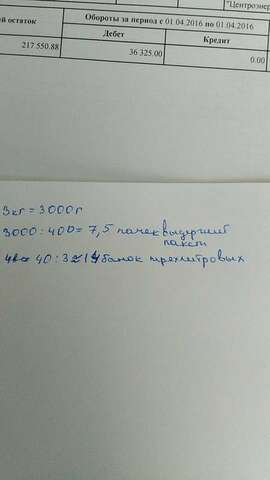 "Центроэнер
й остаток
Обороты за период с 01.04.2016 по 01.04.2016
Дебет Кредит
217 550.88 36 325.00 0.00
3кг = 3000г
3000 : 400 = 7,5 пачек выдержит
пакет
40 : 3 ≈ 14 банок трехлитровых